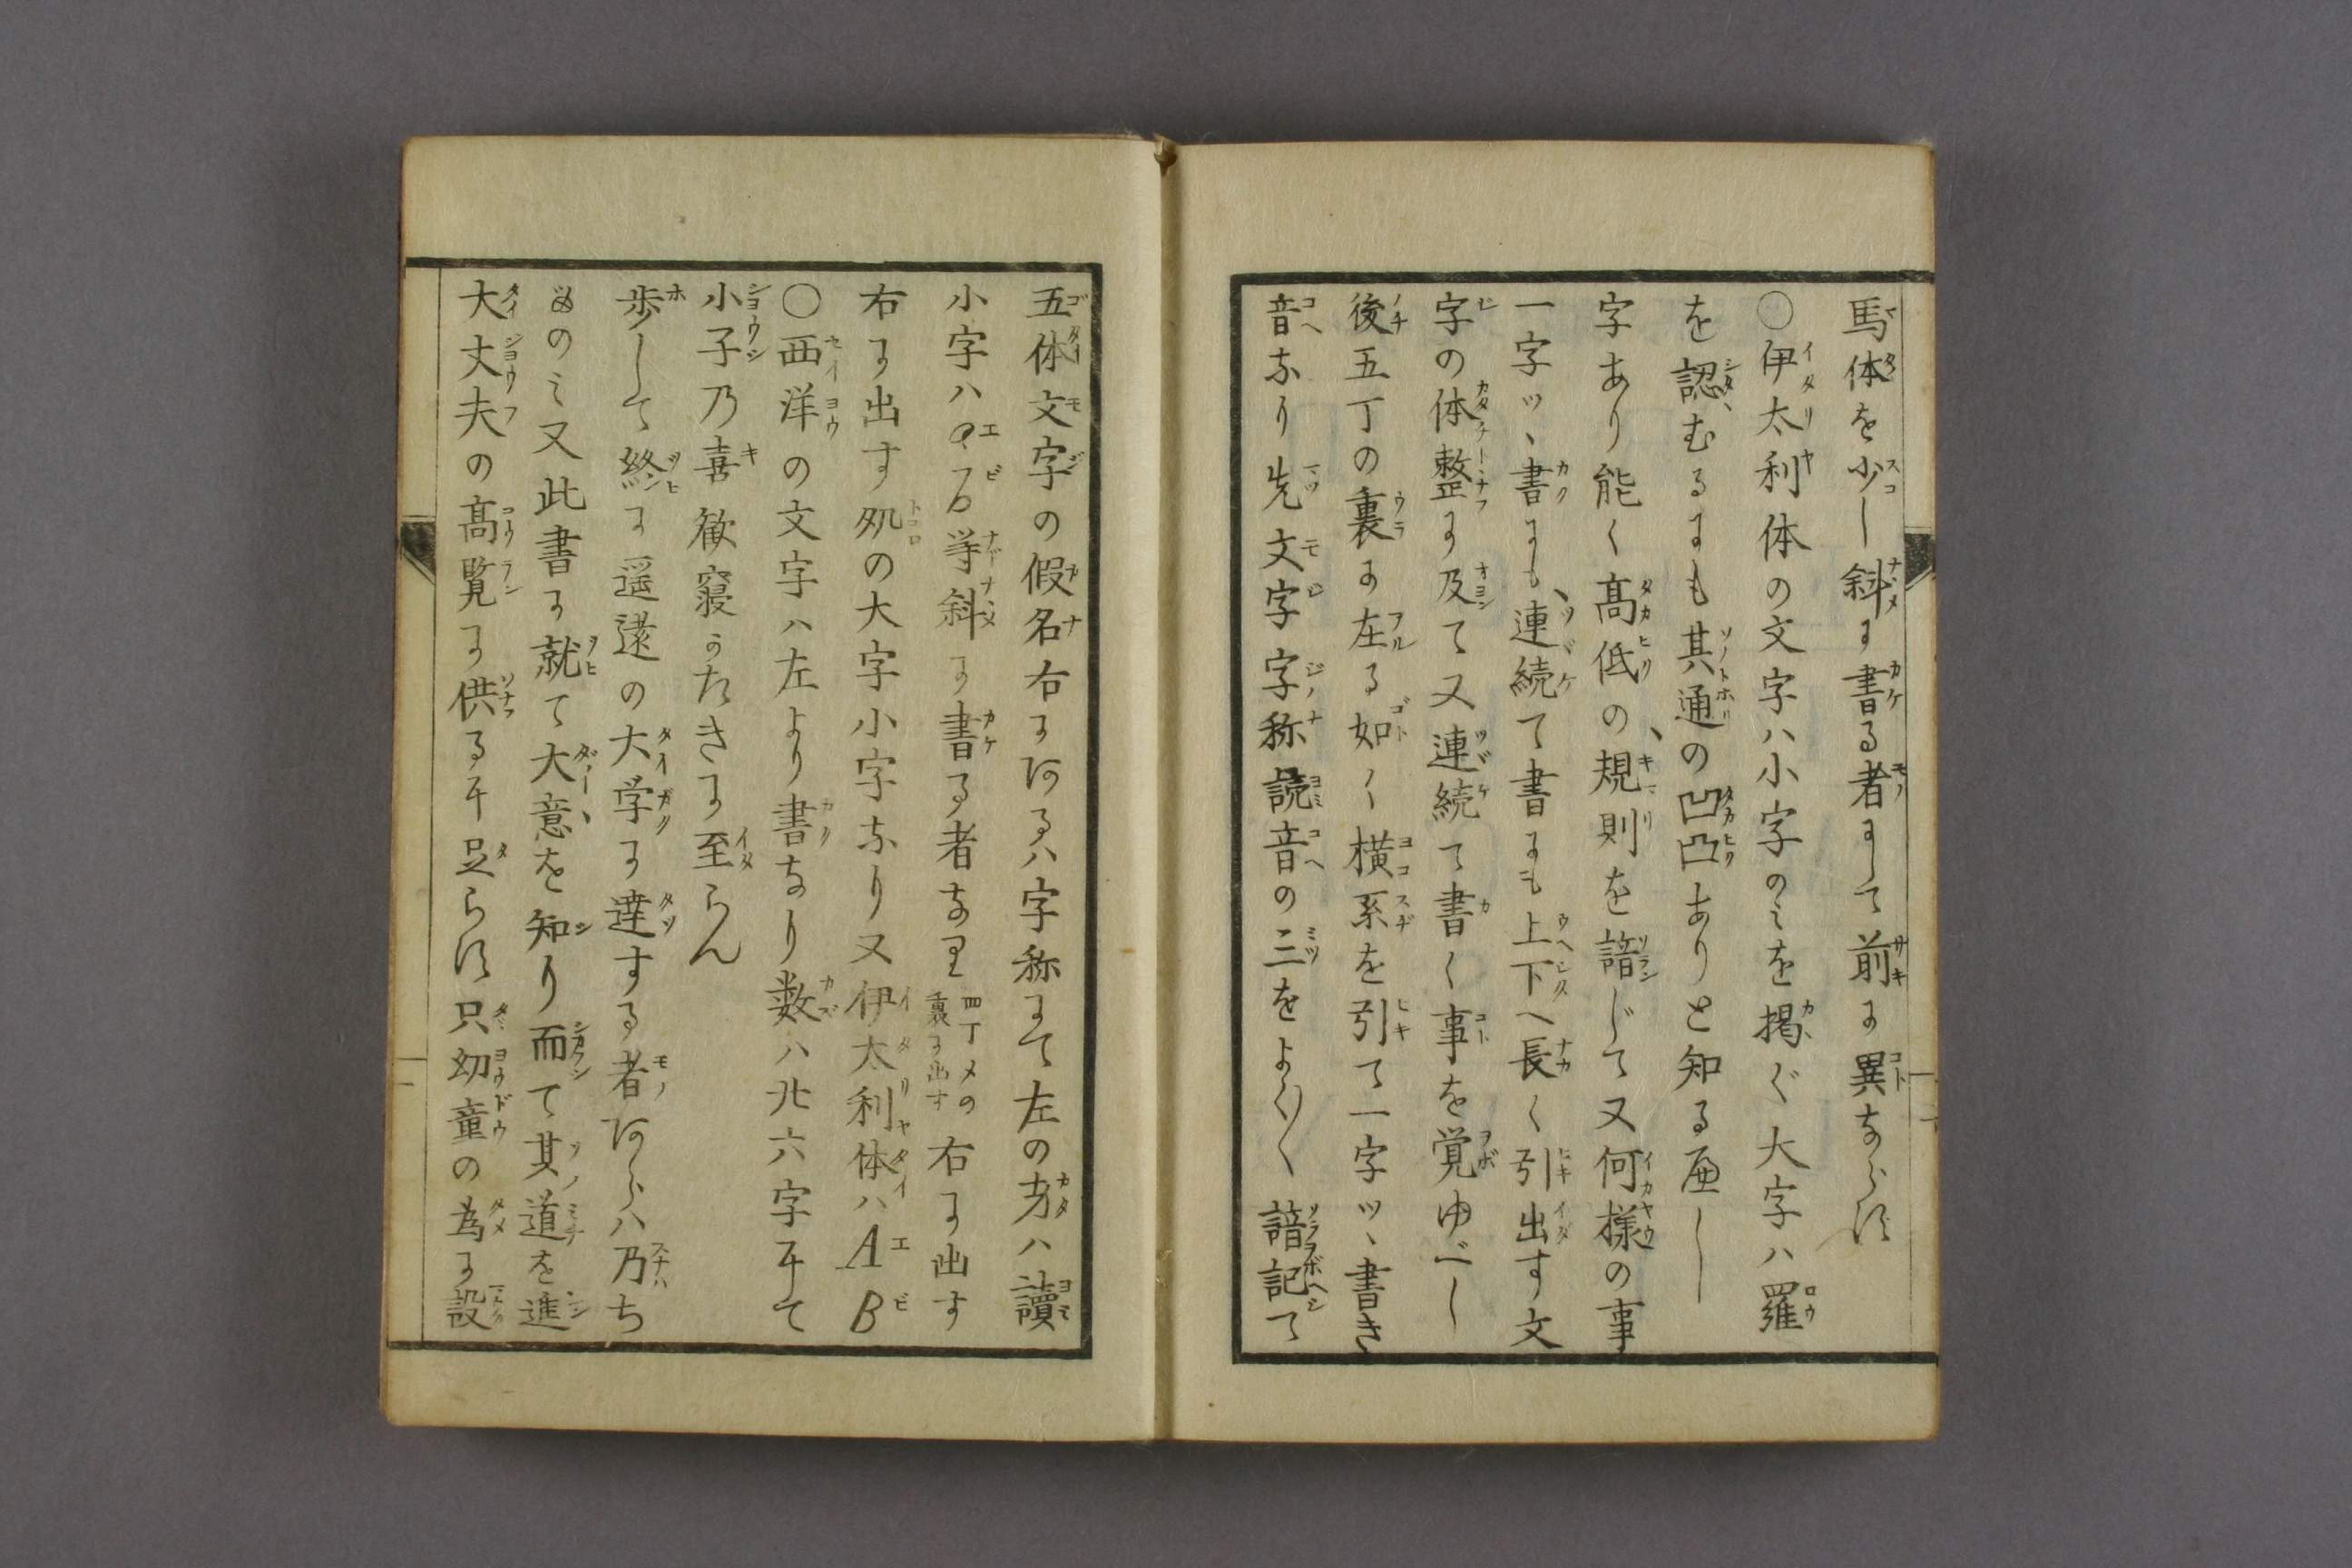 馬体を少し斜に書る者にして前に異ならず
○伊太利体の文字ハ小字のミを掲ぐ大字ハ羅
を認むるにも其通の凹凸ありと知る可し
字あり能く高低の規則を諳じて又何様の事
一字ツヽ書にも連続て書にも上下へ長く引出す文
字の体整に及て又連続て書く事を覚ゆべし
後五丁の裏に在る如く横系を引て一字ツヽ書き
音なり先文字字称読音の三をよく〳〵諳記て
五体文字の假名右にあるハ字称にて左の方ハ讀
小字ハa b等斜に書る者なり四丁メの裏に出す右に出す
右に出す処の大字小字なり又伊太利体ハA B
○西洋の文字ハ左より書なり数ハ廿六字にて
小子乃喜歓寝かたきに至らん
歩して終に遥遠の大学に達する者あらハ乃ち
むのミ又此書に就て大意を知り而て其道を進
大丈夫の高覧に供るに足らず只幼童の為に設